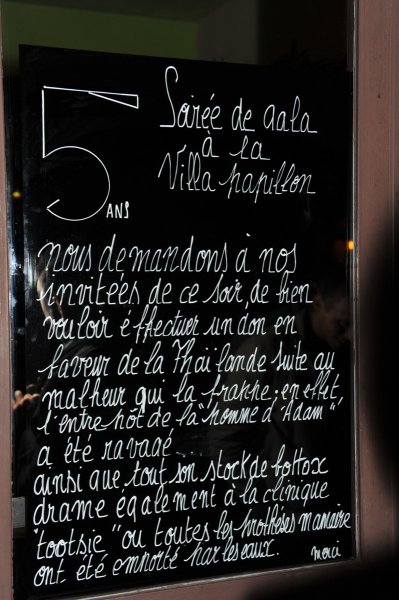 5 ANS
Soirée de gala
à la
Villa papillon
nous demandons à nos
invitées de ce soir, de bien
vouloir éffectuer un don en
faveur de la Thaïlande suite au
malheur qui la frappe; en effet,
l'entrepôt de la "homme d'Adam",
a été ravagé...
ainsi que tout son stock de bottox
drame également à la clinique
"tootsie" ou toutes les prothéses mamaire
ont été emporté par les eaux.
merci